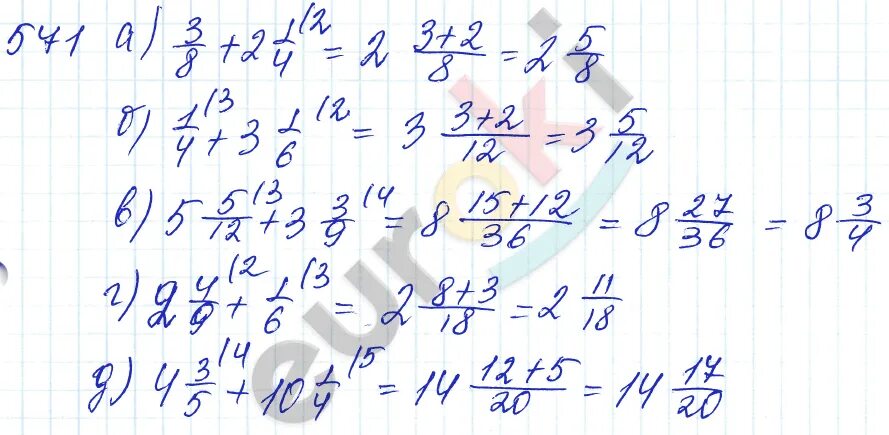 571 а) 3/8 + 2 1/4 (2 = 2 3+2/8 = 2 5/8
б) 1/4 (3 + 3 1/6 (2 = 3 3+2/12 = 3 5/12
в) 5 5/12 (3 + 3 3/9 (4 = 8 15+12/36 = 8 27/36 = 8 3/4
г) 2 4/9 (2 + 1/6 (3 = 2 8+3/18 = 2 11/18
д) 4 3/5 (4 + 10 1/4 (5 = 14 12+5/20 = 14 17/20
euroki